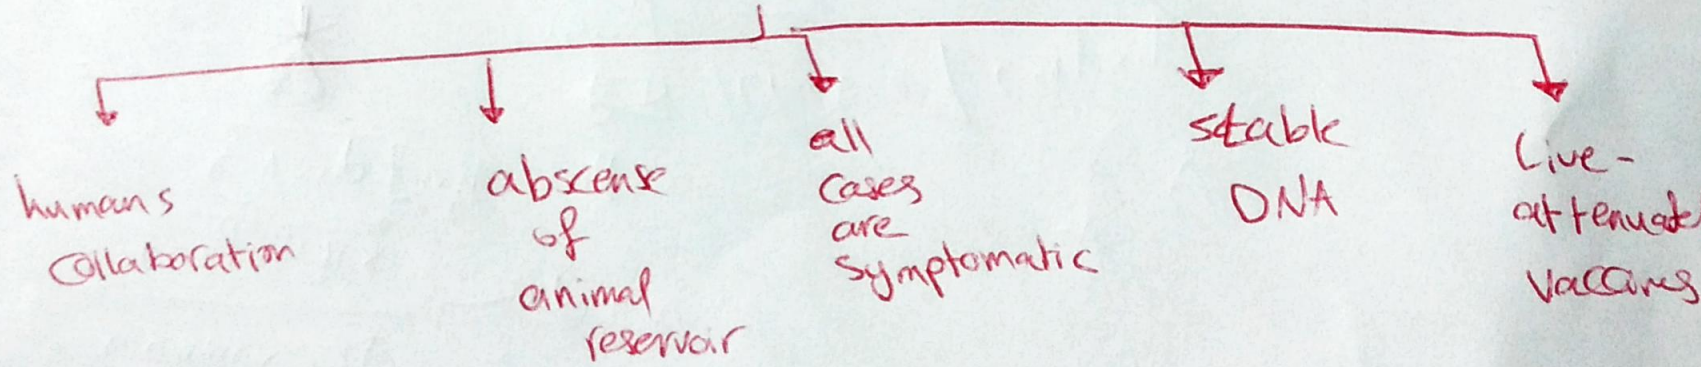 humans
collaboration
abscense
of
animal
reservoir
all
cases
are
symptomatic
stable
DNA
Live-
attenuate
vaccines